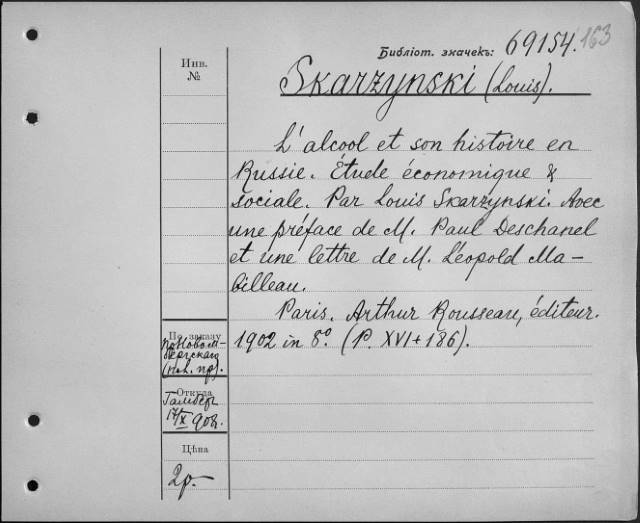 Библіот. значекъ: 69154. 163
Инв.
№
Skarzynski (Louis).
L'alcool et son histoire en
Russie. Étude économique &
sociale. Par Louis Skarzynski. Avec
une préface de M. Paul Deschanel
et une lettre de M. Léopold Ma-
billeau.
Paris. Arthur Rousseau, éditeur.
1902 in 8º. (P. XVI+186).
По заказу
Откуда
17/X 908.
Цѣна
2р.—